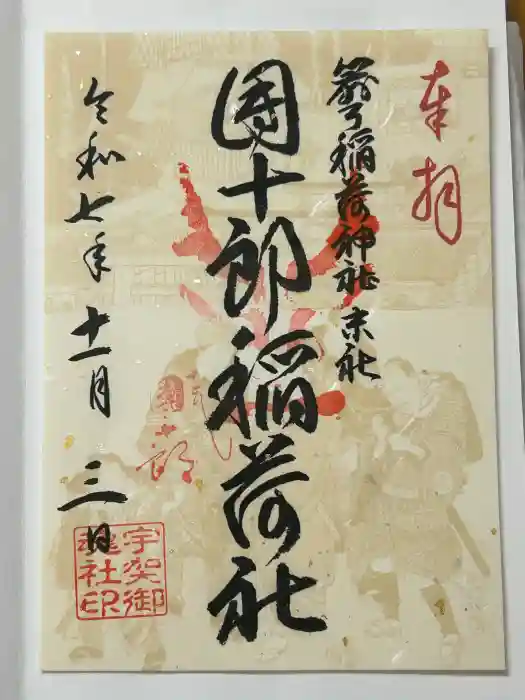 奉拝
箭弓稲荷神社末社
團十郎稲荷社
令和七年十一月三日
魂社印